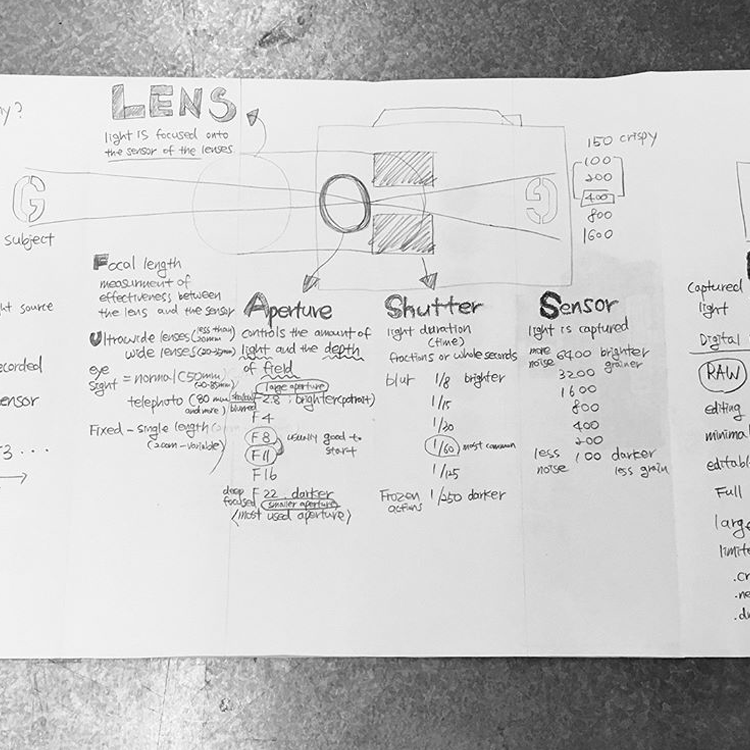 y?
LENS
light is focused onto
the sensor of the lenses
G
subject
G
150 crispy
100
200
400
800
1600
ht source
ecorded
ensor
3 ...
Focal length
measurment of
effectiveness between
the lens and the sensor
Ultrawide lenses (less than 20mm)
wide lenses (20-35mm)
eye
sight = normal (50mm)
telephoto (80 mm and more)
Fixed - single length
(zoom - variable)
Aperture
controls the amount of
light and the depth
of field
large aperture
blurred F 2.8 : brighter (portrait)
F 4
F 8 usually good to
F 11 start
F 16
deep F 22 . darker
focused smaller aperture
(most used aperture)
Shutter
light duration
(time)
fractions or whole seconds
blur 1/8 brighter
1/15
1/30
1/60 most common
1/125
Frozen 1/250 darker
actions
Sensor
light is captured
more 6400 brighter
noise 3200 grainer
1600
800
400
200
less 100 darker
noise less grain
captured
light
Digital
RAW
editing
minimal
editabl
Full
large
limite
.cr
.ne
.d